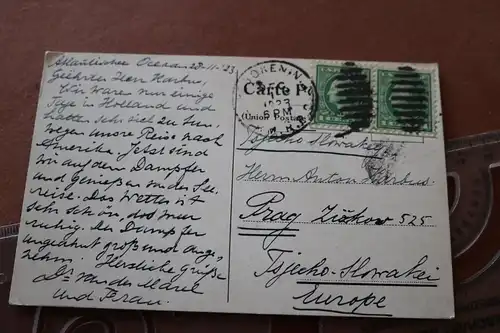 Atlantischer Ocean 28-11-'23
Geehrter Herr Harbus,
Wir waren nur einige
Tage in Holland und
hatten sehr viel zu tun
wegen unsre Reise nach
Amerika. Jetzt sind
wir auf dem Dampfer
und genießen in der See-
reise. Das Wetter ist
sehr schön, das Meer
ruhig. Der Dampfer
ungeahnt groß und ange-
nehm. Herzliche Grüße
Dr van der Marel
und Frau.
HOBOKEN, N.J.
1923
6 PM
Carte P
(Union Posta
Tsjecho Slowakei
Herrn Anton Harbus.
Prag Žižkow 525
Tsjecho-Slowakei
Europe